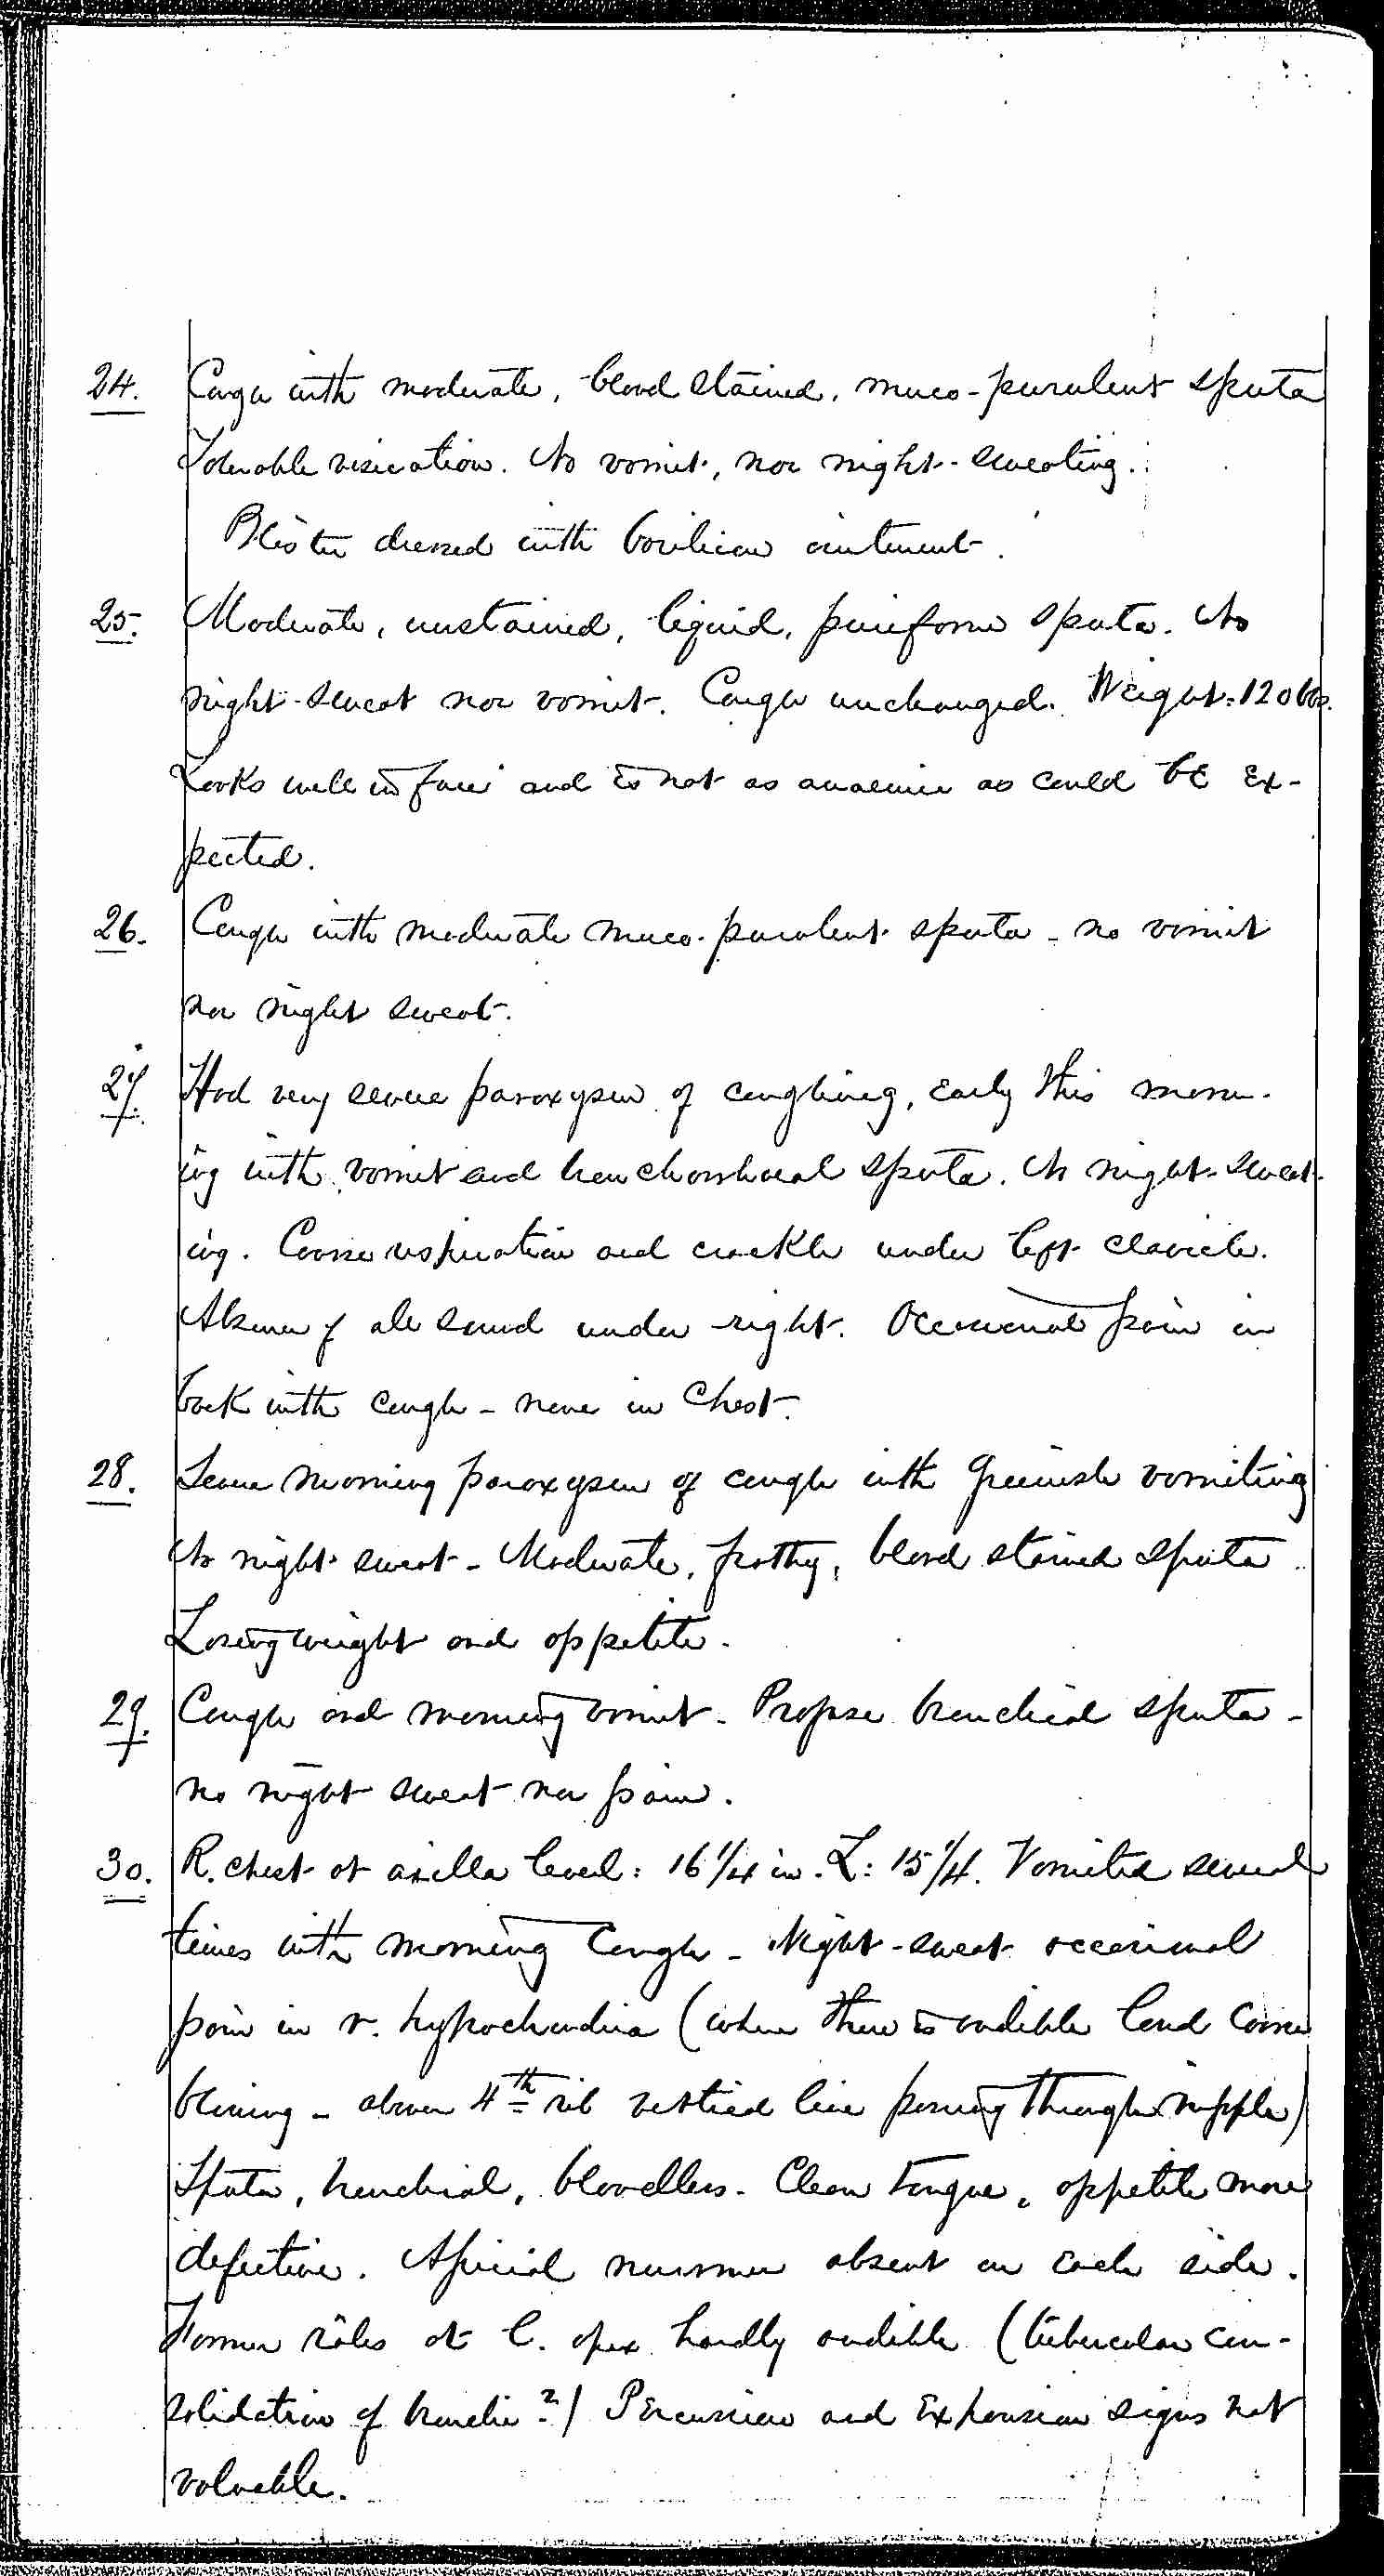 24. Cough with moderate, blood stained, muco-purulent sputa
Tolerable vesication. No vomit, nor night-sweating.
Blister dressed with basilicon ointment.
25. Moderate, unstained, liquid, puriform sputa. No
night-sweat nor vomit. Cough unchanged. Weight: 120 lbs.
Looks well in face and is not as anaemic as could be ex-
pected.
26. Cough with moderate muco-purulent sputa - no vomit
nor night sweat.
27. Had very severe paroxysm of coughing, early this morn-
ing with vomit and bronchorrhoeal sputa. No night-sweat-
ing. Coarse respiration and crackle under left clavicle.
Absence of all sound under right. Occasional pain in
back with cough - none in chest.
28. Severe morning paroxysm of cough with greenish vomiting
No night sweat - Moderate, frothy, blood stained sputa
Losing weight and appetite.
29. Cough and morning vomit - Profuse bronchial sputa -
no night sweat nor pain.
30. R. chest at axilla level: 16 1/4 in. L: 15 1/4. Vomited several
times with morning cough - Night-sweat occasional
pain in r. hypochondria (where there is audible loud coarse
- above 4th rib vertical line passing through nipple)
Sputa, bronchial, bloodless. Clean tongue, appetite more
defective. Apicial murmur absent on each side.
Former râles at l. apex hardly audible (tubercular con-
solidation of bronchi?) Percussion and expansion signs not
valuable.